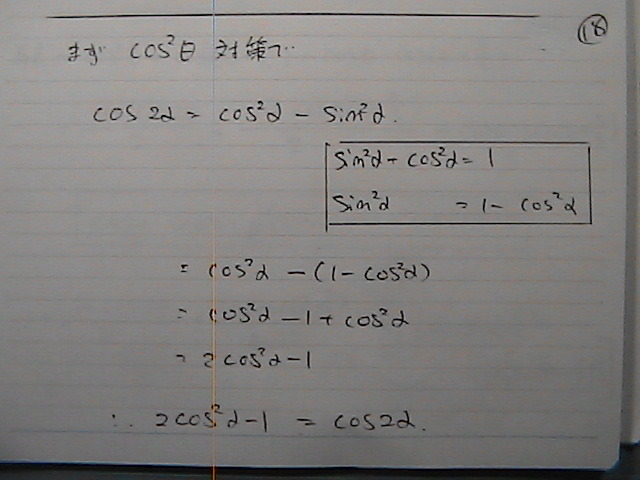 ⑱
まず cos²θ 対策で…
cos 2α = cos²α - sin²α.
sin²α + cos²α = 1
sin²α = 1 - cos²α
= cos²α - (1 - cos²α)
= cos²α - 1 + cos²α
= 2cos²α - 1
∴ 2cos²α - 1 = cos2α.